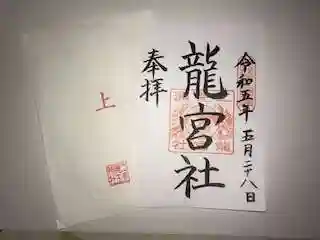 令和五年五月二十八日
龍宮社
奉拝
上